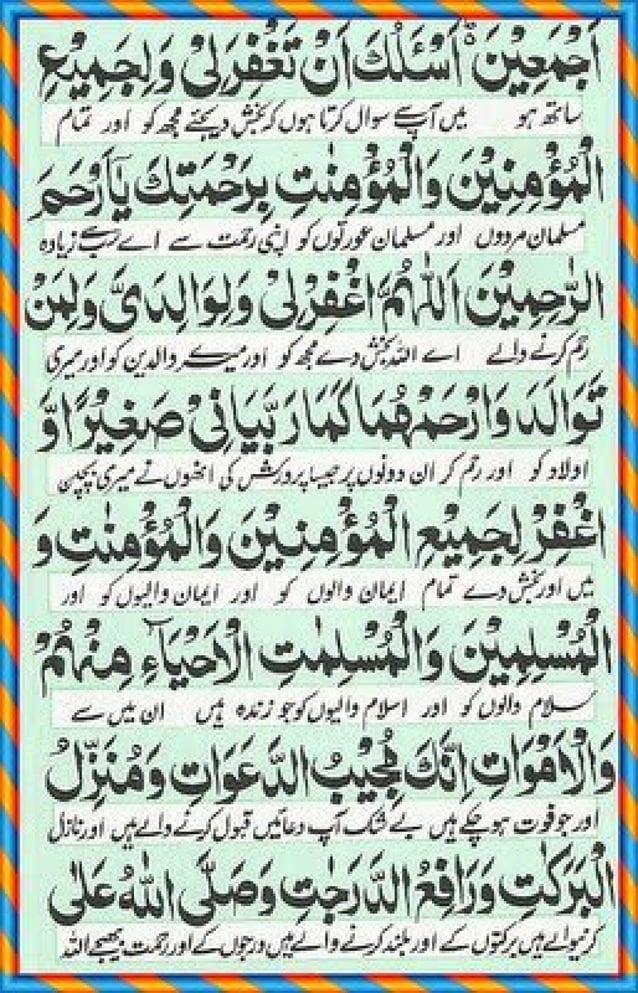 اَجْمَعِيْنَ ؕ اَسْئَلُكَ اَنْ تَغْفِرَلِىْ وَلِجَمِيْعِ
ساتھ ہو میں آپ سے سوال کرتا ہوں کہ بخش دیجئے مجھ کو اور تمام
الْمُؤْمِنِيْنَ وَالْمُؤْمِنٰتِ بِرَحْمَتِكَ يَآاَرْحَمَ
مسلمان مردوں اور مسلمان عورتوں کو اپنی رحمت سے اے سب سے زیادہ
الرّٰحِمِيْنَ اَللّٰهُمَّ اغْفِرْلِىْ وَلِوَالِدَىَّ وَلِمَنْ
رحم کرنے والے اے اللہ بخش دے مجھ کو اور میرے والدین کو اور میری
تَوَالَدَ وَارْحَمْهُمَا كَمَا رَبَّيَانِىْ صَغِيْرًا وَّ
اولاد کو اور رحم کر ان دونوں پر جیسا پرورش کی انھوں نے میری بچپن
اغْفِرْ لِجَمِيْعِ الْمُؤْمِنِيْنَ وَالْمُؤْمِنٰتِ وَ
میں اور بخش دے تمام ایمان والوں کو اور ایمان والیوں کو اور
الْمُسْلِمِيْنَ وَالْمُسْلِمٰتِ الْاَحْيَآءِ مِنْهُمْ
سلام والوں کو اور اسلام والیوں کو جو زندہ ہیں ان میں سے
وَالْاَمْوَاتِ اِنَّكَ مُجِيْبُ الدَّعَوَاتِ وَمُنَزِّلُ
اور جو فوت ہو چکے ہیں بے شک آپ دعائیں قبول کرنے والے ہیں اور نازل
الْبَرَكٰتِ وَرَافِعُ الدَّرَجٰتِ وَصَلَّى اللّٰهُ عَلٰى
کرنیوالے ہیں برکتوں کے اور بلند کرنے والے ہیں درجوں کے اور رحمت بھیجے اللہ